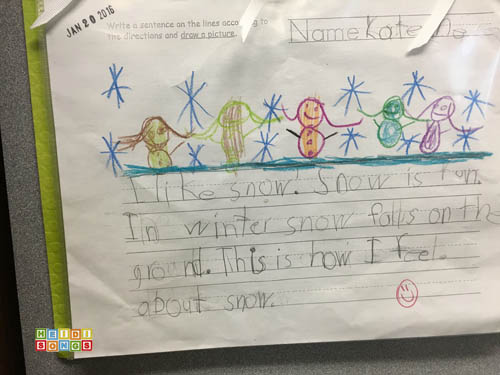 JAN 20 2016
Write a sentence on the lines according to
the directions and draw a picture.
Name Kate
I like snow. Snow is fun.
In winter snow falls on the
ground. This is how I feel.
about snow.
HEIDI
SONGS